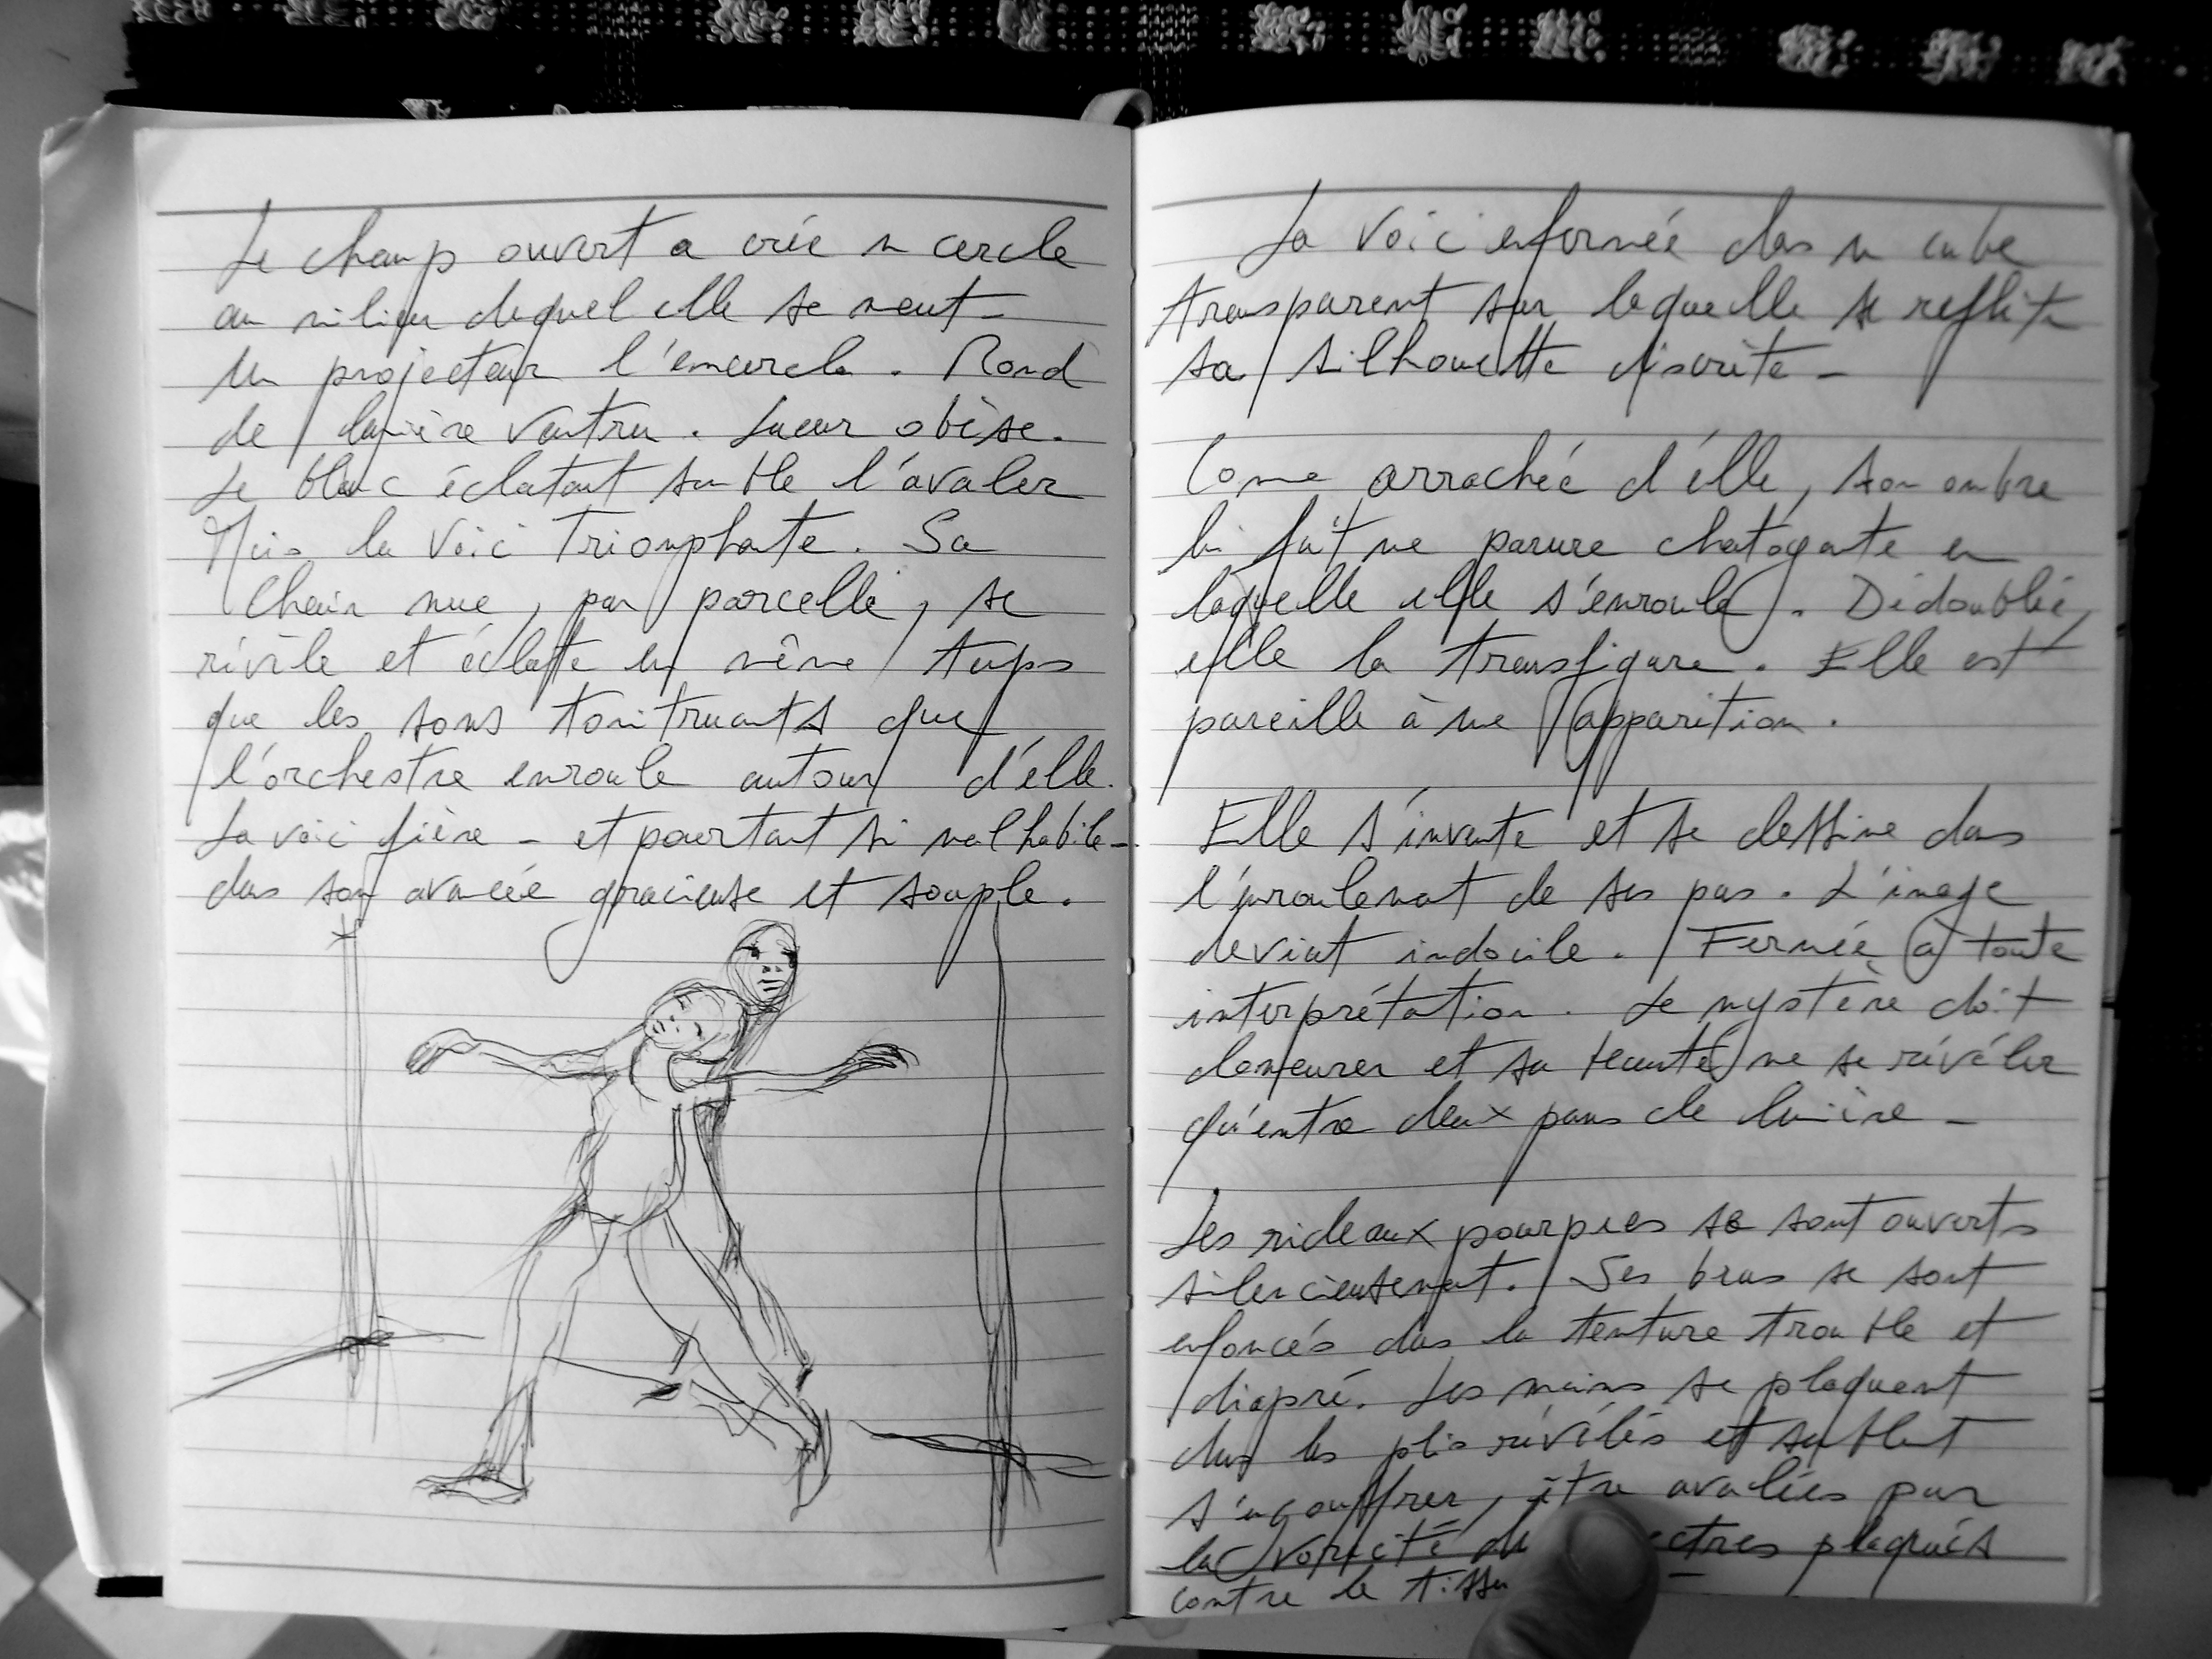 Le champ ouvert a crée un cercle
au milieu duquel elle se meut -
Un projecteur l'encercle. Rond
de lumière ventru. Lueur obèse.
Le blanc éclatant semble l'avaler
Mais la voici triomphante. Sa
chair nue, par parcelle, se
révèle et éclate en même temps
que les sons tonitruants que
l'orchestre enroule autour d'elle.
La voici fière - et pourtant si malhabile -
dans son avancée gracieuse et souple.
La voici enfermée dans un cube
transparent sur laquelle se reflète
sa silhouette discrète -
Comme arrachée d'elle, son ombre
lui fait une parure chatoyante en
laquelle elle s'enroule. Dédoublée,
elle la transfigure. Elle est
pareille à une apparition.
Elle s'invente et se dessine dans
l'enroulement de ses pas. L'image
devient indocile. Fermée à toute
interprétation. Le mystère doit
demeurer et sa beauté ne se révéler
qu'entre deux pans de lumière -
Les rideaux pourpres se sont ouverts
silencieusement. Ses bras se sont
enfoncés dans la tenture trouble et
diapré. Les mains se plaquent
dans les plis révélés et semblent
s'engouffrer, être avalées par
la voracité de plaqués
contre le tissu